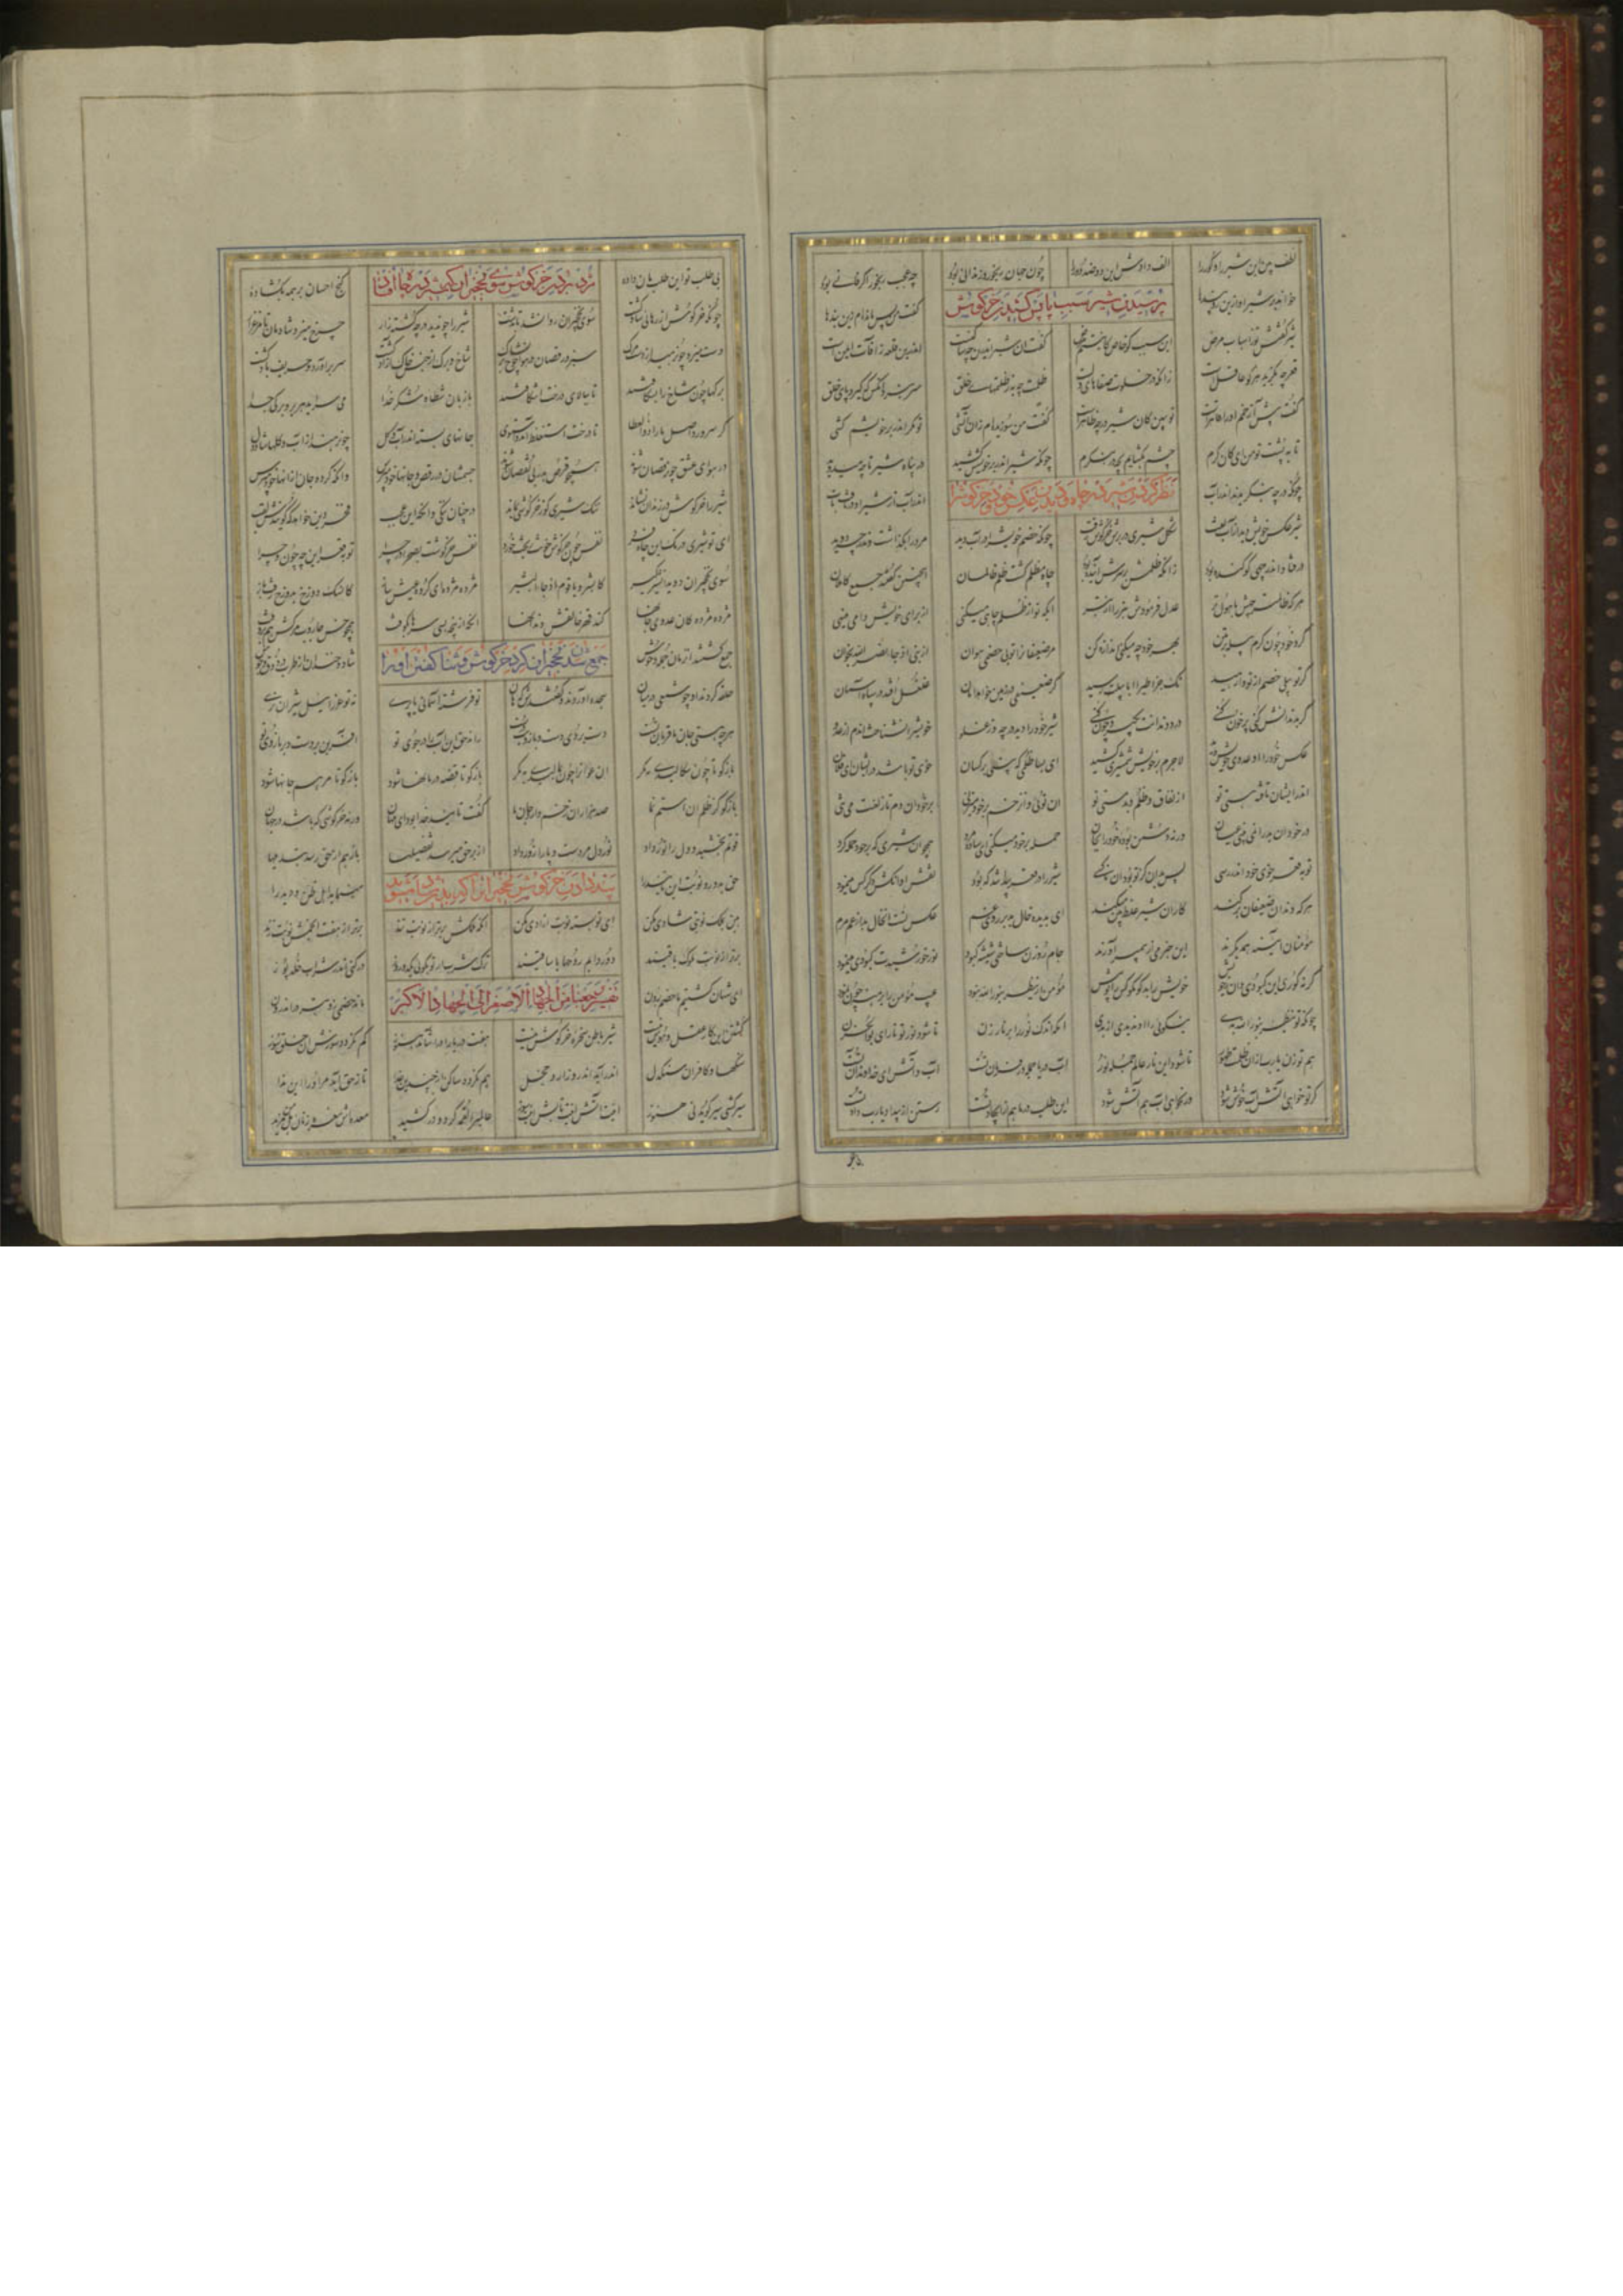 لطف حق این شیر را و گور را الف دادش این دو ضد دور را چون جهان رنجور و زندانی بود چه عجب رنجور اگر فانی بود
خواند بر شیر او ازین رو پندها گفت من پس مانده‌ام زین بندها
پرسیدن شیر سبب پا پس کشیدن خرگوش
شیر گفتش تو ز اسباب مرض این سبب گو خاص کاینستم غرض گفت آن شیر اندرین چه ساکنست اندرین قلعه ز آفات ایمنست
قعر چه بگزید هر کو عاقلست زانکه در خلوت صفاهای دلست ظلمت چه به که ظلمتهای خلق سر نبرد آنکس که گیرد پای خلق
گفت پیش آ زخمم او را قاهرست تو ببین کان شیر در چه حاضرست گفت من سوزیده‌ام زان آتشی تو مگر اندر بر خویشم کشی
تا به پشت تو من ای کان کرم چشم بگشایم بچه در بنگرم چونکه شیر اندر بر خویشش کشید در پناه شیر تا چه میدوید
چونکه در چه بنگریدند اندر آب اندر آب از شیر و او در تافت تاب
نظر کردن شیر در چاه و دیدن عکس خود و خرگوش را
شیر عکس خویش دید از آب تفت شکل شیری در برش خرگوش زفت چونکه خصم خویش را در آب دید مر ورا بگذاشت و اندر چه دوید
در فتاد اندر چهی کو کنده بود زانکه ظلمش بر سرش آینده بود چاه مظلم گشت ظلم ظالمان اینچنین گفتند جمیع عالمان
هر که ظالمتر چهش با هول تر عدل فرمودش بتر را بتر ایکه تو از ظلم چاهی میکنی از برای خویش دامی می تنی
گرد خود چون کرم پیله بر متن بهر خود چه میکنی اندازه کن مر ضعیفان را تو بی خصمی مدان از نبی اذ جاء نصر الله بخوان
گر تو پیلی خصم تو از تو رمید نک جزا طیرا ابابیلت رسید گر ضعیفی در زمین خواهد امان غلغل افتد در سپاه آسمان
گر بدندانش گزی پر خون کنی درد دندانت بگیرد چون کنی شیر خود را دید در چه وز غلو خویش را نشناخت آندم از عدو
عکس خود را او عدوی خویش دید لاجرم بر خویش شمشیری کشید ای بسا ظلمی که بینی در کسان خوی تو باشد در ایشان ای فلان
اندر ایشان تافته هستی تو از نفاق و ظلم و بد مستی تو آن توئی وان زخم بر خود میزنی بر خود آندم تار لعنت می تنی
در خود آن بد را نمی بینی عیان ورنه دشمن بوده خود را بجان حمله بر خود میکنی ای ساده مرد همچو آن شیری که بر خود حمله کرد
چون بقعر خوی خود اندر رسی پس بدانی کز تو بود آن ناکسی شیر را در قعر پیدا شد که بود نقش او آنکش دگر کس مینمود
هر که دندان ضعیفان برکند کار آن شیر غلط بین میکند ای بدیده خال بد بر روی عم عکس خال تست آن از عم مرم
مؤمنان آیینه همدیگرند این خبر می از پیمبر آورند جام روزن ساختی شیشه کبود نور خورشیدت کبودی مینمود
گر نه کوری این کبودی دان ز خویش خویش را بد گو مگو کس را تو بیش مؤمن ار ینظر بنور الله نبود عیب مؤمن را برهنه چون نمود
چونکه تو ینظر بنار الله بدی نیکوئی را واندیدی از بدی اندک اندک نور را بر نار زن تا شود نار تو نور ای بوالحزن
هم تو زن یا رب از آن آب طهور تا شود این نار عالم جمله نور آب دریا جمله در فرمان تست آب و آتش ای خداوند آن تست
گر تو خواهی آتش آب خوش شود ور نخواهی آب هم آتش شود این طلب در ما هم از ایجاد تست رستن از بیداد یا رب داد تست
بی طلب تو این طلب مان داده گنج احسان بر همه بگشاده
مژده بردن خرگوش سوی نخجیران که شیر در چاه افتاد
چونکه خرگوش از رهائی شاد گشت سوی نخجیران روان شد تا بدشت شیر را چون دید در چه گشته زار چرخ میزد شادمان تا مرغزار
دست میزد چون رهید از دست مرگ سبز و رقصان در هوا چون شاخ و برگ شاخ و برگ از حبس خاک آزاد گشت سر برآورد و حریف باد گشت
برگها چون شاخ را بشکافتند تا ببالای درخت اشتافتند با زبان شطأه شکر خدا می سراید هر بر و برگی جدا
که بپرورد اصل ما را ذوالعطا تا درخت استغلظ آمد و استوی جانهای بسته اندر آب و گل چون رهند از آب و گلها شاد دل
در هوای عشق حق رقصان شوند همچو قرص بدر بی نقصان شوند جسمشان در رقص و جانها خود مپرس وانکه گرد جان از آنها خود مپرس
شیر را خرگوش در زندان نشاند ننگ شیری کو ز خرگوشی بماند در چنان ننگی و آنگه این عجب فخر دین خواهد که گویندش لقب
ای تو شیری در تک این چاه فرد نفس چون خرگوش خونت ریخت و خورد نفس خرگوشت بصحرا در چرا تو بقعر این چه چون و چرا
سوی نخجیران دوید آن شیرگیر کابشروا یا قوم اذ جاء البشیر مژده مژده ای گروه عیش ساز کان سگ دوزخ بدوزخ رفت باز
مژده مژده کان عدوی جانها کند قهر خالقش دندانها آنکه از پنجه بسی سرها بکوفت همچو خس جاروب مرگش هم بروفت
جمع شدن نخجیران گرد خرگوش و ثنا گفتن او را
جمع گشتند آن زمان جمله وحوش شاد و خندان از طرب در ذوق و جوش
حلقه کردند او چو شمعی در میان سجده آوردند و گفتندش که هان تو فرشته آسمانی یا پری نه تو عزرائیل شیران نری
هرچه هستی جان ما قربان تست دست بردی دست و بازویت درست راند حق این آب را در جوی تو آفرین بر دست و بر بازوی تو
بازگو تا چون سگالیدی بمکر آن عوان را چون بمالیدی بمکر بازگو تا قصه درمانها شود بازگو تا مرهم جانها شود
بازگو کز ظلم آن استم نما صد هزاران زخم دارد جان ما گفت تایید خدا بود ای مهان ورنه خرگوشی که باشد در جهان
قوتم بخشید و دل را نور داد نور دل مر دست و پا را زور داد از بر حق میرسد تفضیلها باز هم از حق رسد تبدیلها
حق بدور و نوبت این تایید را مینماید اهل ظن و دید را
پند دادن خرگوش نخجیران را که بدین شاد مشوید
هین بملک نوبتی شادی مکن ای تو بسته نوبت آزادی مکن آنکه ملکش برتر از نوبت تنند برتر از هفت انجمش نوبت زنند
برتر از نوبت ملوک باقیند دور دایم روحها با ساقیند ترک شرب ار تو بگوئی یکدو روز در کنی اندر شراب خلد پوز
تفسیر رجعنا من الجهاد الاصغر الی الجهاد الاکبر
ای شهان کشتیم ما خصم برون ماند خصمی زو بتر در اندرون
کشتن این کار عقل و هوش نیست شیر باطن سخره خرگوش نیست هفت دریا را در آشامد هنوز کم نگردد سوزش آن خلق سوز
سنگها و کافران سنگدل اندر آیند اندرو زار و خجل هم نگردد ساکن از چندین غذا تا ز حق آید مر او را این ندا
سیر گشتی سیر گوید نی هنوز اینت آتش اینت تابش اینت سوز عالمی را لقمه کرد و در کشید معده اش نعره زنان هل من مزید